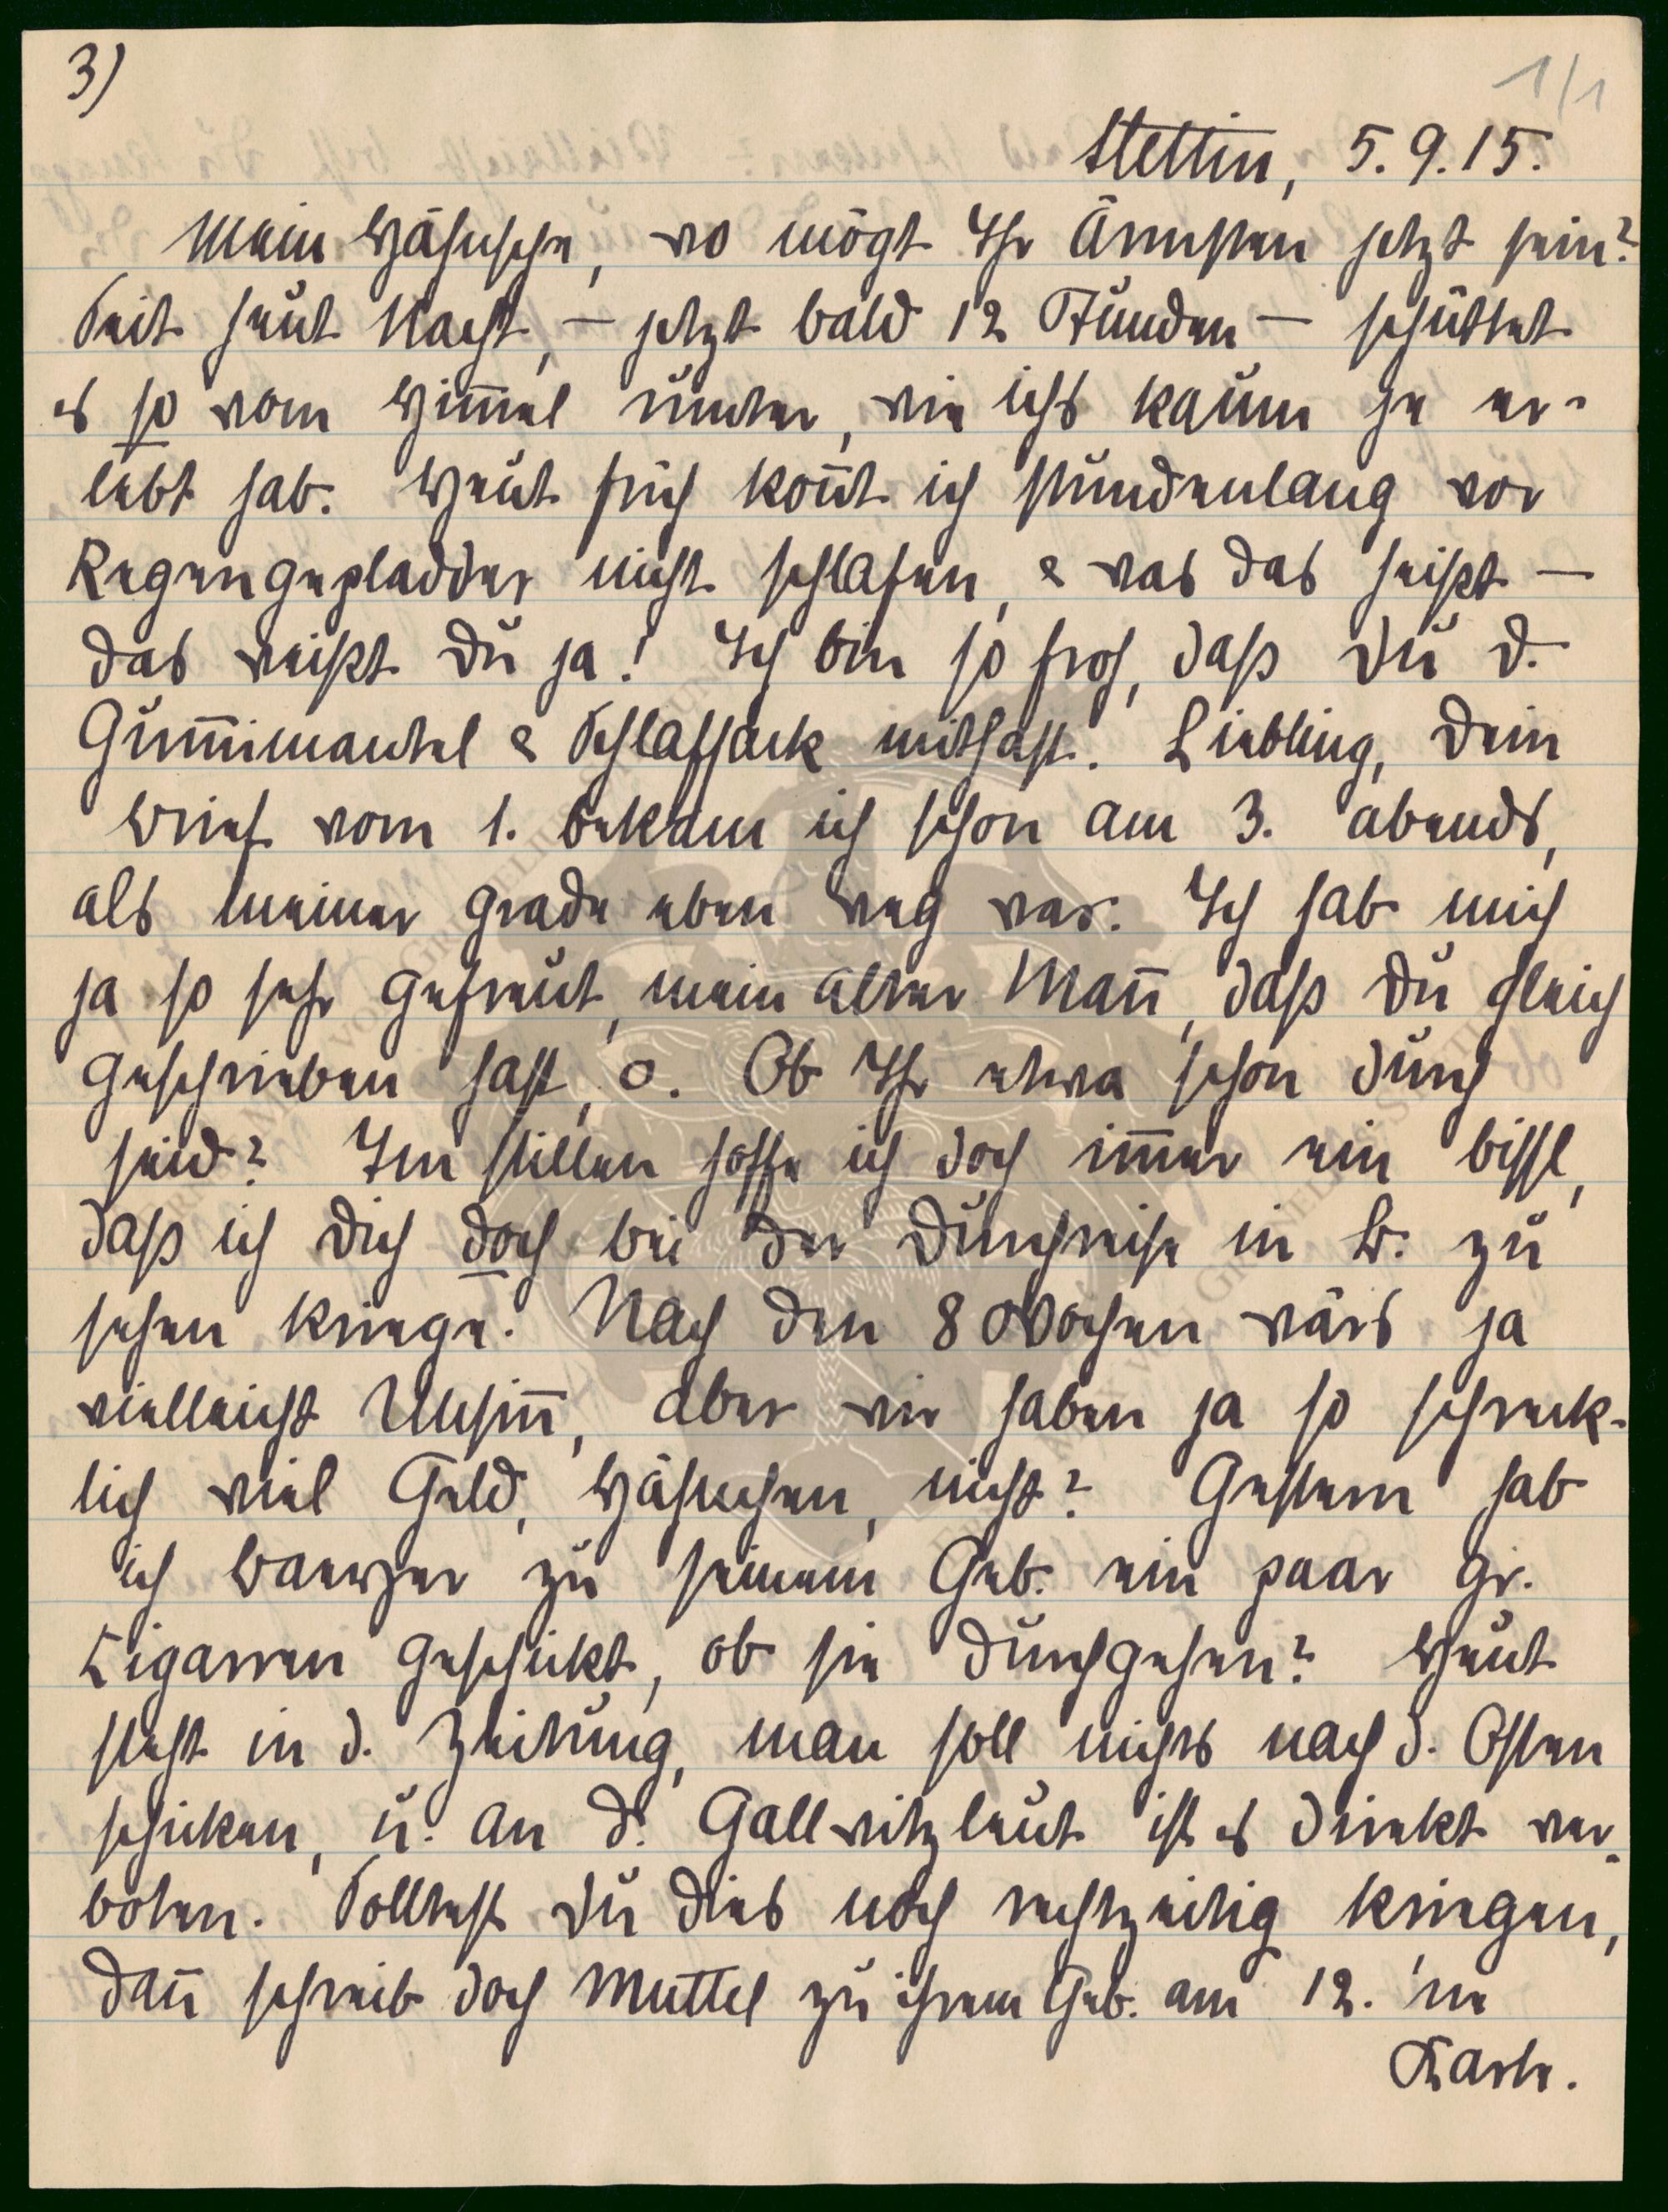 3)
1/1
Stettin, 5.9.15.
Mein Hähnche, wo mögt Ihr Ärmsten jetzt sein?
Seit heut Nacht, – jetzt bald 12 Stunden – schüttet
es so vom Him̅el runter, wie ichs kaum je er-
lebt hab. Heut früh kon̅t ich stundenlang vor
Regengepladder nicht schlafen, & was das heißt –
das weißt Du ja! Ich bin so froh, daß Du d.
Gum̅imantel & Schlafsack mithast. Liebling, Dein
Brief vom 1. bekam ich schon am 3. abends,
als meiner grade eben weg war. Ich hab mich
ja so sehr gefreut, mein alter Man̅, daß Du gleich
geschrieben hast, o. Ob Ihr etwa schon durch
seid? Im stillen hoffe ich doch im̅er ein bissl,
daß ich Dich doch bei der Durchreise in B. zu
sehen kriege. Nach den 8 Wochen wärs ja
vielleicht Unsin̅, aber wir haben ja so schreck-
lich viel Geld, Hähnchen, nicht? Gestern hab
ich zu seinem Geb. ein paar gr.
Zigarren geschickt, ob sie durchgehen? Heut
steht in d. Zeitung, man soll nichts nach d. Osten
schicken, u. an d. Gallwitzleut ist es direkt ver-
boten. Solltest Du dies noch rechtzeitig kriegen,
dan̅ schreib doch Muttel zu ihrem Geb. am 12. 'ne
Karte.